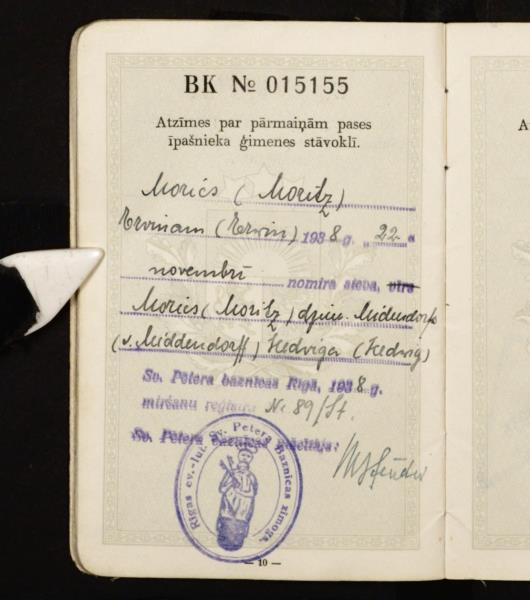 BK № 015155
Atzīmes par pārmaiņām pases
īpašnieka ģimenes stāvoklī.
Morics (Moritz)
Ervinam (Erwin) 1938 g. „22"
novembrī nomira sieva, vīrs
Morics (Moritz) dzim. Midendorfs
(v. Middendorff) Hedviga (Hedwig)
Sv. Pētera baznīcas Rīgā, 1938 g.
miršanu reģistra Nr 89/St.
Sv. Pētera baznīcas
Rīgas ev.-lut. Sv. Pētera Baznīcas zīmogs.
— 10 —
A